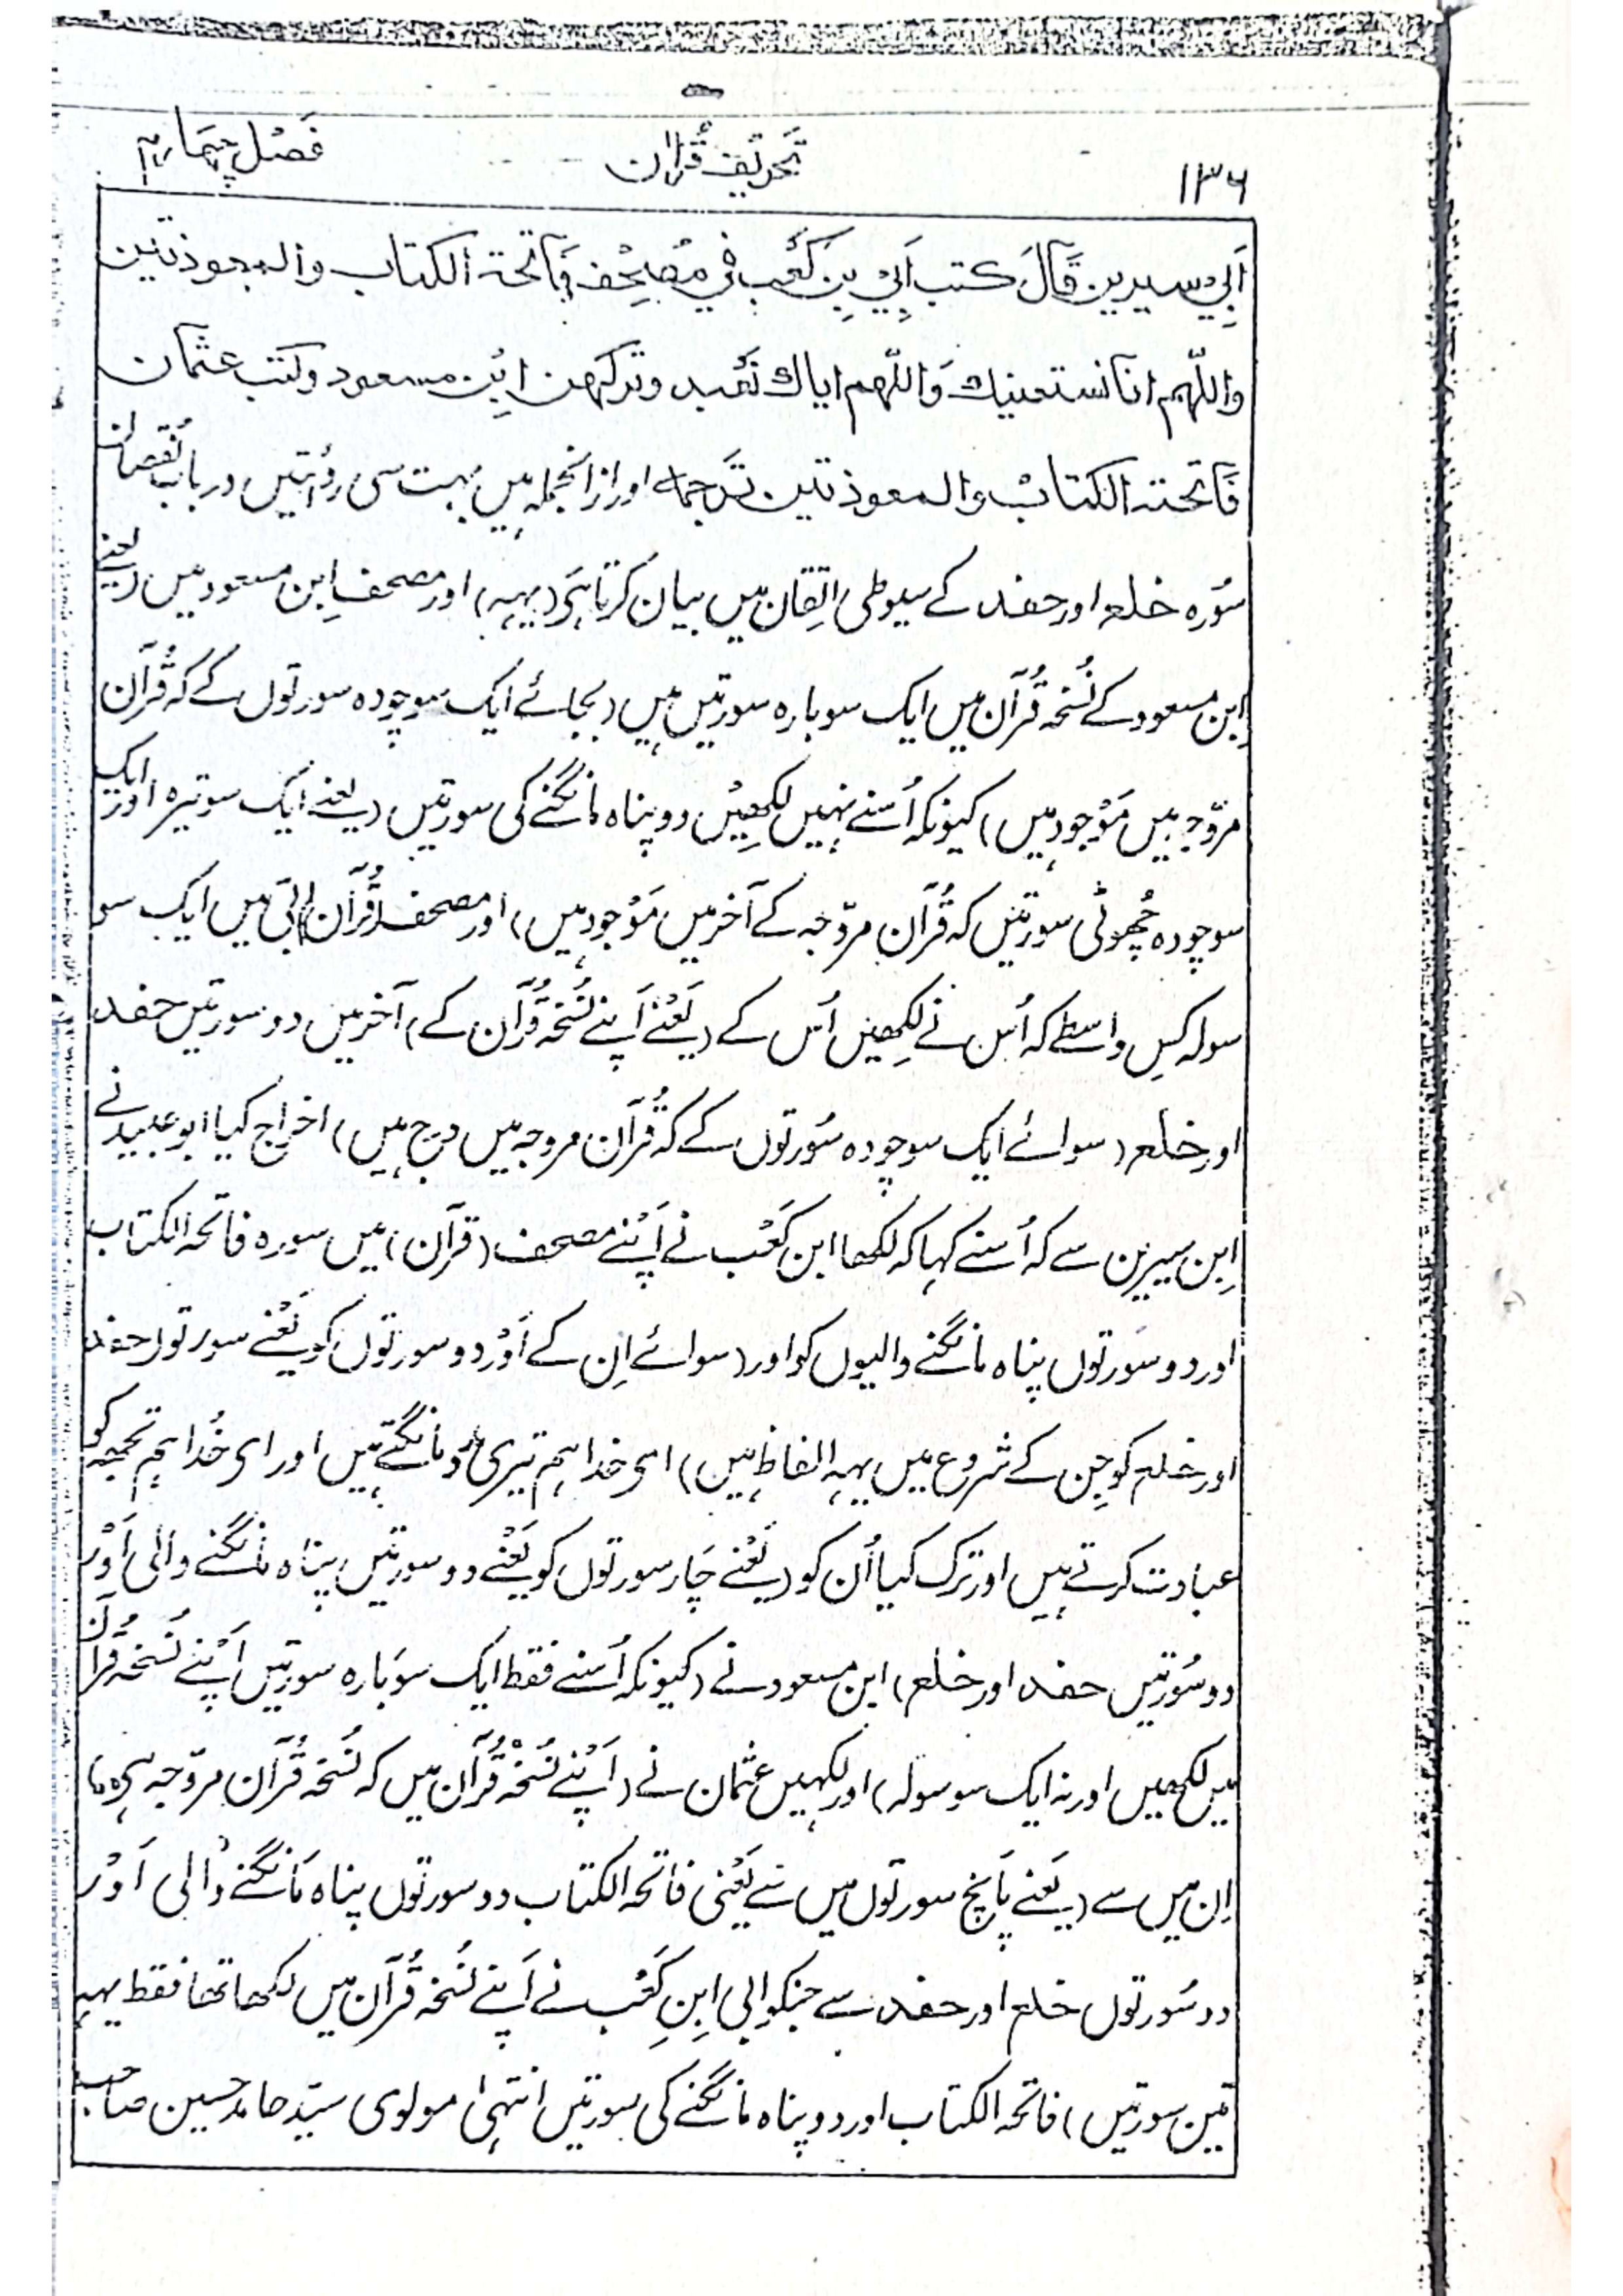 ۱۳۶ تحریف قرآن فصل چہارم
اَبِیْ سیرین قَالَ کتب اَبِیْ بِن کَعْب فِیْ مُصْحِف فَاتحۃ الکتاب والمعوذتین
واللّٰہم انا نستعینک وَاللّٰہم ایاک نَعْبد وترکہن ابن مسعود وکتب عثمان
فَاتحۃ الکتاب والمعوذتین ترجمہ اور ازانجملہ ہیں بہت سی روایتیں درباب نقصان
سُورہ خلع اور حفد کے سیوطی اتقان میں بیان کرتا ہَی (یہہ) اور مصحف اِبن مسعود میں (یعنے
اِبن مسعود کے نُسخہ قُرآن میں ایک سو بارہ سورتیں ہیں (بجائے ایک سو چودہ سورتوں کے کہ قُرآن
مرّوجہ میں مَوْجود ہیں) کیونکہ اُسنے نہیں لِکھیں دو پناہ مانگنے کی سورتیں (یعنے ایک سو تیرہ اور ایک
سو چودہ چُھوٹی سورتیں کہ قُرآن مروّجہ کے آخر میں مَوْجود ہیں) اور مصحف (قُرآن) ابی میں ایک سو
سولہ کِس واسطے کہ اُس نے لِکھیں اُس کے (یَعْنے اَپنے نُسخہ قُرآن کے) آخر میں دو سورتیں حفد
اور خلع (سوائے ایک سو چودہ سُورتوں کے کہ قُرآن مروجہ میں درج ہیں) اخراج کیا ابو عبید نے
اِبن سیرین سے کہ اُسنے کہا کہ لکھا ابن کَعْب نے اَپنے مصحف (قرآن) میں سورہ فاتحہ الکتاب
اور دو سُورتوں پناہ مانگنے والیوں کو اور (سوائے اِن کے اَوْر دو سورتوں کو یَعْنے سورتوں حفد
اور خلع کو جِن کے شروع میں یہہ الفاظ ہیں) ای خدا ہم تیری مدد مانگتے ہیں اور ای خُدا ہم تجھہ کو
عبادت کرتے ہیں اور ترک کیا اُن کو (یَعْنے چَار سورتوں کو یَعْنے دو سورتیں پناہ مانگنے والی اَوْر
دو سُورتیں حفد اور خلع) ابن مسعود نے (کیونکہ اُسنے فقط ایک سو بارہ سورتیں اَپنے نُسخہ قُرآن
میں لکھیں اور نہ ایک سو سولہ) اور لکہیں عثمان نے (اَپنے نُسخہ قُرآن میں کہ نُسخہ قُرآن مروّجہ ہی
اِن میں سے (یَعنے پانچ سورتوں میں سے یَعْنی فاتحہ الکتاب دو سورتوں پناہ مَانگنے والی اَوْر
دو سُورتوں خلع اور حفد سے جنکو ابی اِبنِ کَعْب نے اَپنے نُسخہ قُرآن میں لکھا تھا فقط یہہ
تین سورتیں) فاتحہ الکتاب اور دو پناہ مانگنے کی سورتیں انتہیٰ مولوی سیّد حامد حسین صاحب